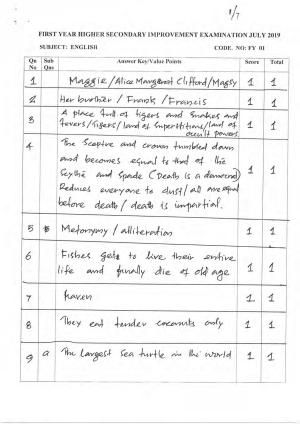 1/7
FIRST YEAR HIGHER SECONDARY IMPROVEMENT EXAMINATION JULY 2019
SUBJECT: ENGLISH CODE. NO: FY 01
Qn No Sub Qns Answer Key/Value Points Score Total
1 Maggie / Alice Margaret Clifford / Magsy 1 1
2 Her brother / Frank / Francis 1 1
3 A place full of tigers and snakes and
fevers / tigers / land of superstitions / land of
occult powers 1 1
4 The Sceptre and crown tumbled down
and becomes equal to that of the
Scythe and Spade (Death is a democrat)
Reduces everyone to dust / all are equal
before death / death is impartial. 1 1
5 Metonymy / alliteration 1 1
6 Fishes gets to live their entire
life and finally die of old age 1 1
7 haven 1 1
8 They eat tender coconuts only 1 1
9 a The largest sea turtle in the world 1 1